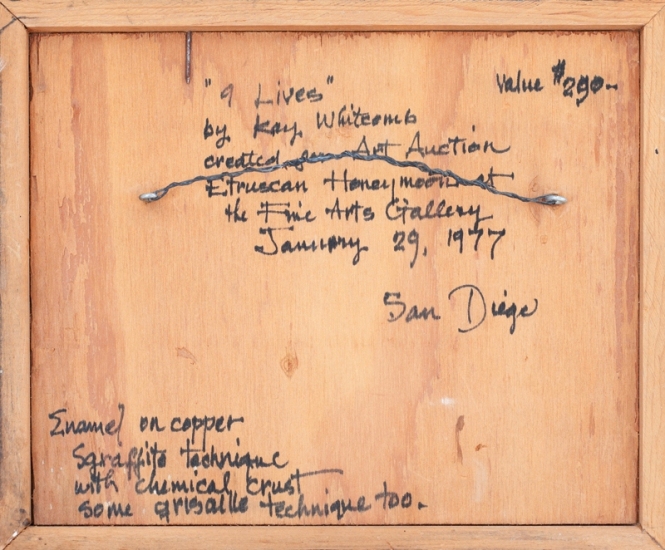 "9 Lives"
Value $290-
by Kay Whitcomb
created for Art Auction
Etruscan Honeymoon at
the Fine Arts Gallery
January 29, 1977
San Diego
Enamel on copper
Sgraffito technique
with chemical crust
some grisaille technique too.